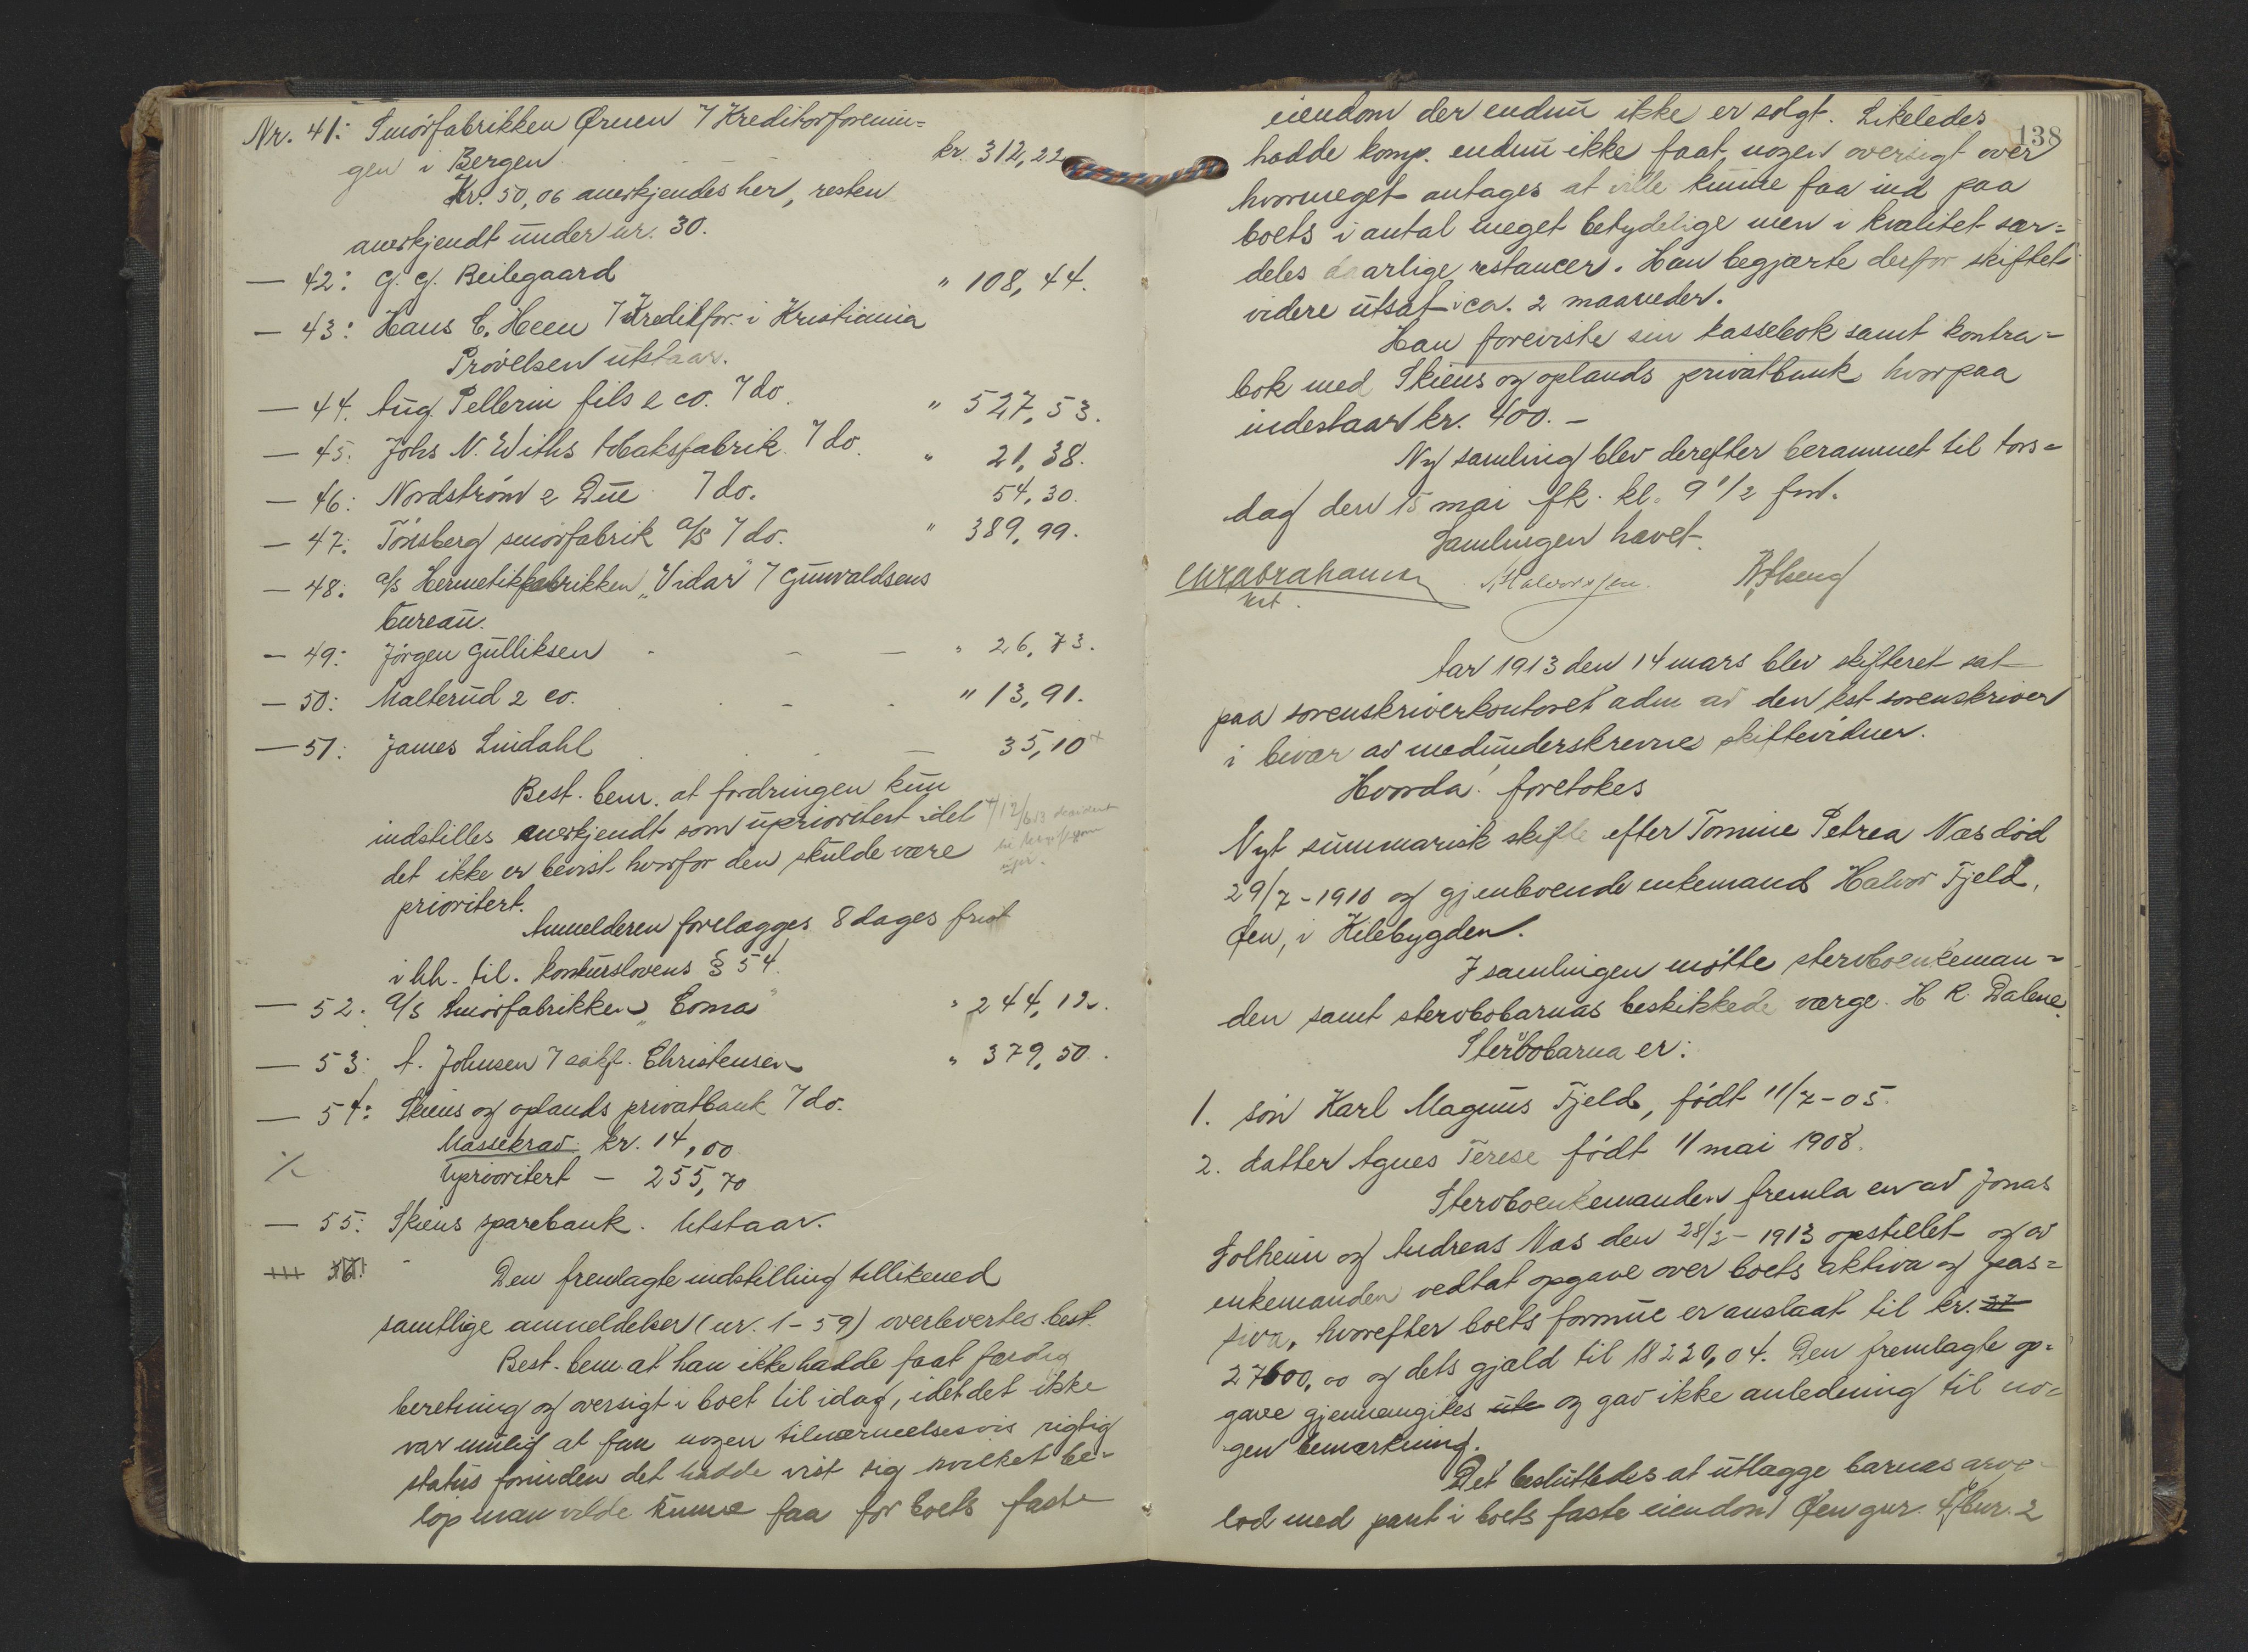 Nr. 41: Smörfabrikken Ørnen 7 Kreditorforenin=
gen i Bergen kr. 312,22
Kr. 50,06 anerkjendes her, resten
anerkjendt under nr. 30.
— 42: G. G. Beilegaard " 108,44.
— 43: Hans C. Heen 7 Kreditfor. i Kristiania
Prövelsen utstaar.
— 44. Aug. Pellerin fils & co. 7 do. " 527,53.
— 45. Johs N. Withs tobaksfabrik 7 do. " 21,38.
— 46: Nordström & Due 7 do. 54,30.
— 47: Tönsberg smörfabrik a/s 7 do. " 389,99.
— 48: a/s Hermetikfabrikken „Vidar" 7 Gunvaldsens
bureau.
— 49: Jörgen Gulliksen - - — " 26,73.
— 50: Malterud & co. . - . " 13,91.
— 51: James Lindahl . . — 35,10 +
Best. bem. at fordringen kun
indstilles anerkjendt som uprioritert idet
det ikke er bevist hvorfor den skulde være
prioritert.
Anmelderen forelægges 8 dages frist
i hh. til. konkurslovens § 54.
— 52. a/s Smörfabrikken „Coma" " 244,12.
— 53: A. Johnsen 7 sakf. Christensen " 379,50.
— 54: Skiens og oplands privatbank 7 do.
Massekrav kr. 14,00
Uprioritert — 255,70
— 55: Skiens sparebank. Utstaar.
56.
Den fremlagte indstilling tillikemed
samtlige anmeldelser (nr. 1-59) overlevertes best.
Best. bem. at han ikke hadde faat færdig
beretning og oversigt i boet til idag, idet det ikke
var mulig at faa nogen tilnærmelsesvis rigtig
status forinden det hadde vist sig hvilket be-
löp man vilde kunne faa for boets faste
138
eiendom der endnu ikke er solgt. Likeledes
hadde komp. endnu ikke faat nogen oversigt over
hvormeget antages at ville kunne faa ind paa
boets i antal meget betydelige men i kvalitet sær=
deles daarlige restancer. Han begjærte derfor skiftet
videre utsat i ca. 2 maaneder.
Han foreviste sin kassebok samt kontra-
bok med Skiens og oplands privatbank hvorpaa
indestaar kr. 400.-
Ny samling blev derefter berammet til tors=
dag den 15 mai fk. kl. 9 1/2 form.
Samlingen hævet.
Chr Abrahamsen Halvorsen
kst.
Aar 1913 den 14 mars blev skifteret sat
paa sorenskriverkontoret adm av den kst sorenskriver
i bivær av medunderskrevne skiftevidner.
Hvorda! foretokes
Nyt summarisk skifte efter Tomine Petrea Næs död
29/7-1910 og gjenlevende enkemand Halvor Fjeld,
Øen, i Kilebygden.
I samlingen mötte stervboenkeman=
den samt stervbobarnas beskikkede værge H. K. Dalene.
Stervbobarna er:
1. sön Karl Magnus Fjeld, födt 11/7-05.
2. datter Agnes Terese födt 11 mai 1908.
Stervboenkemanden fremla en av Jonas
Solheim og Andreas Næs den 28/2-1913 opstillet og av
enkemanden vedtat opgave over boets aktiva og pas=
siva, hvorefter boets formue er anslaat til kr. 27
27600,00 og dets gjæld til 18220,04. Den fremlagte op=
gave gjennemgikes ute og gav ikke anledning til no=
gen bemærkning.
Det besluttedes at utlægge barnas arve-
lod med pant i boets faste eiendom Øen gnr. 4 bnr. 2